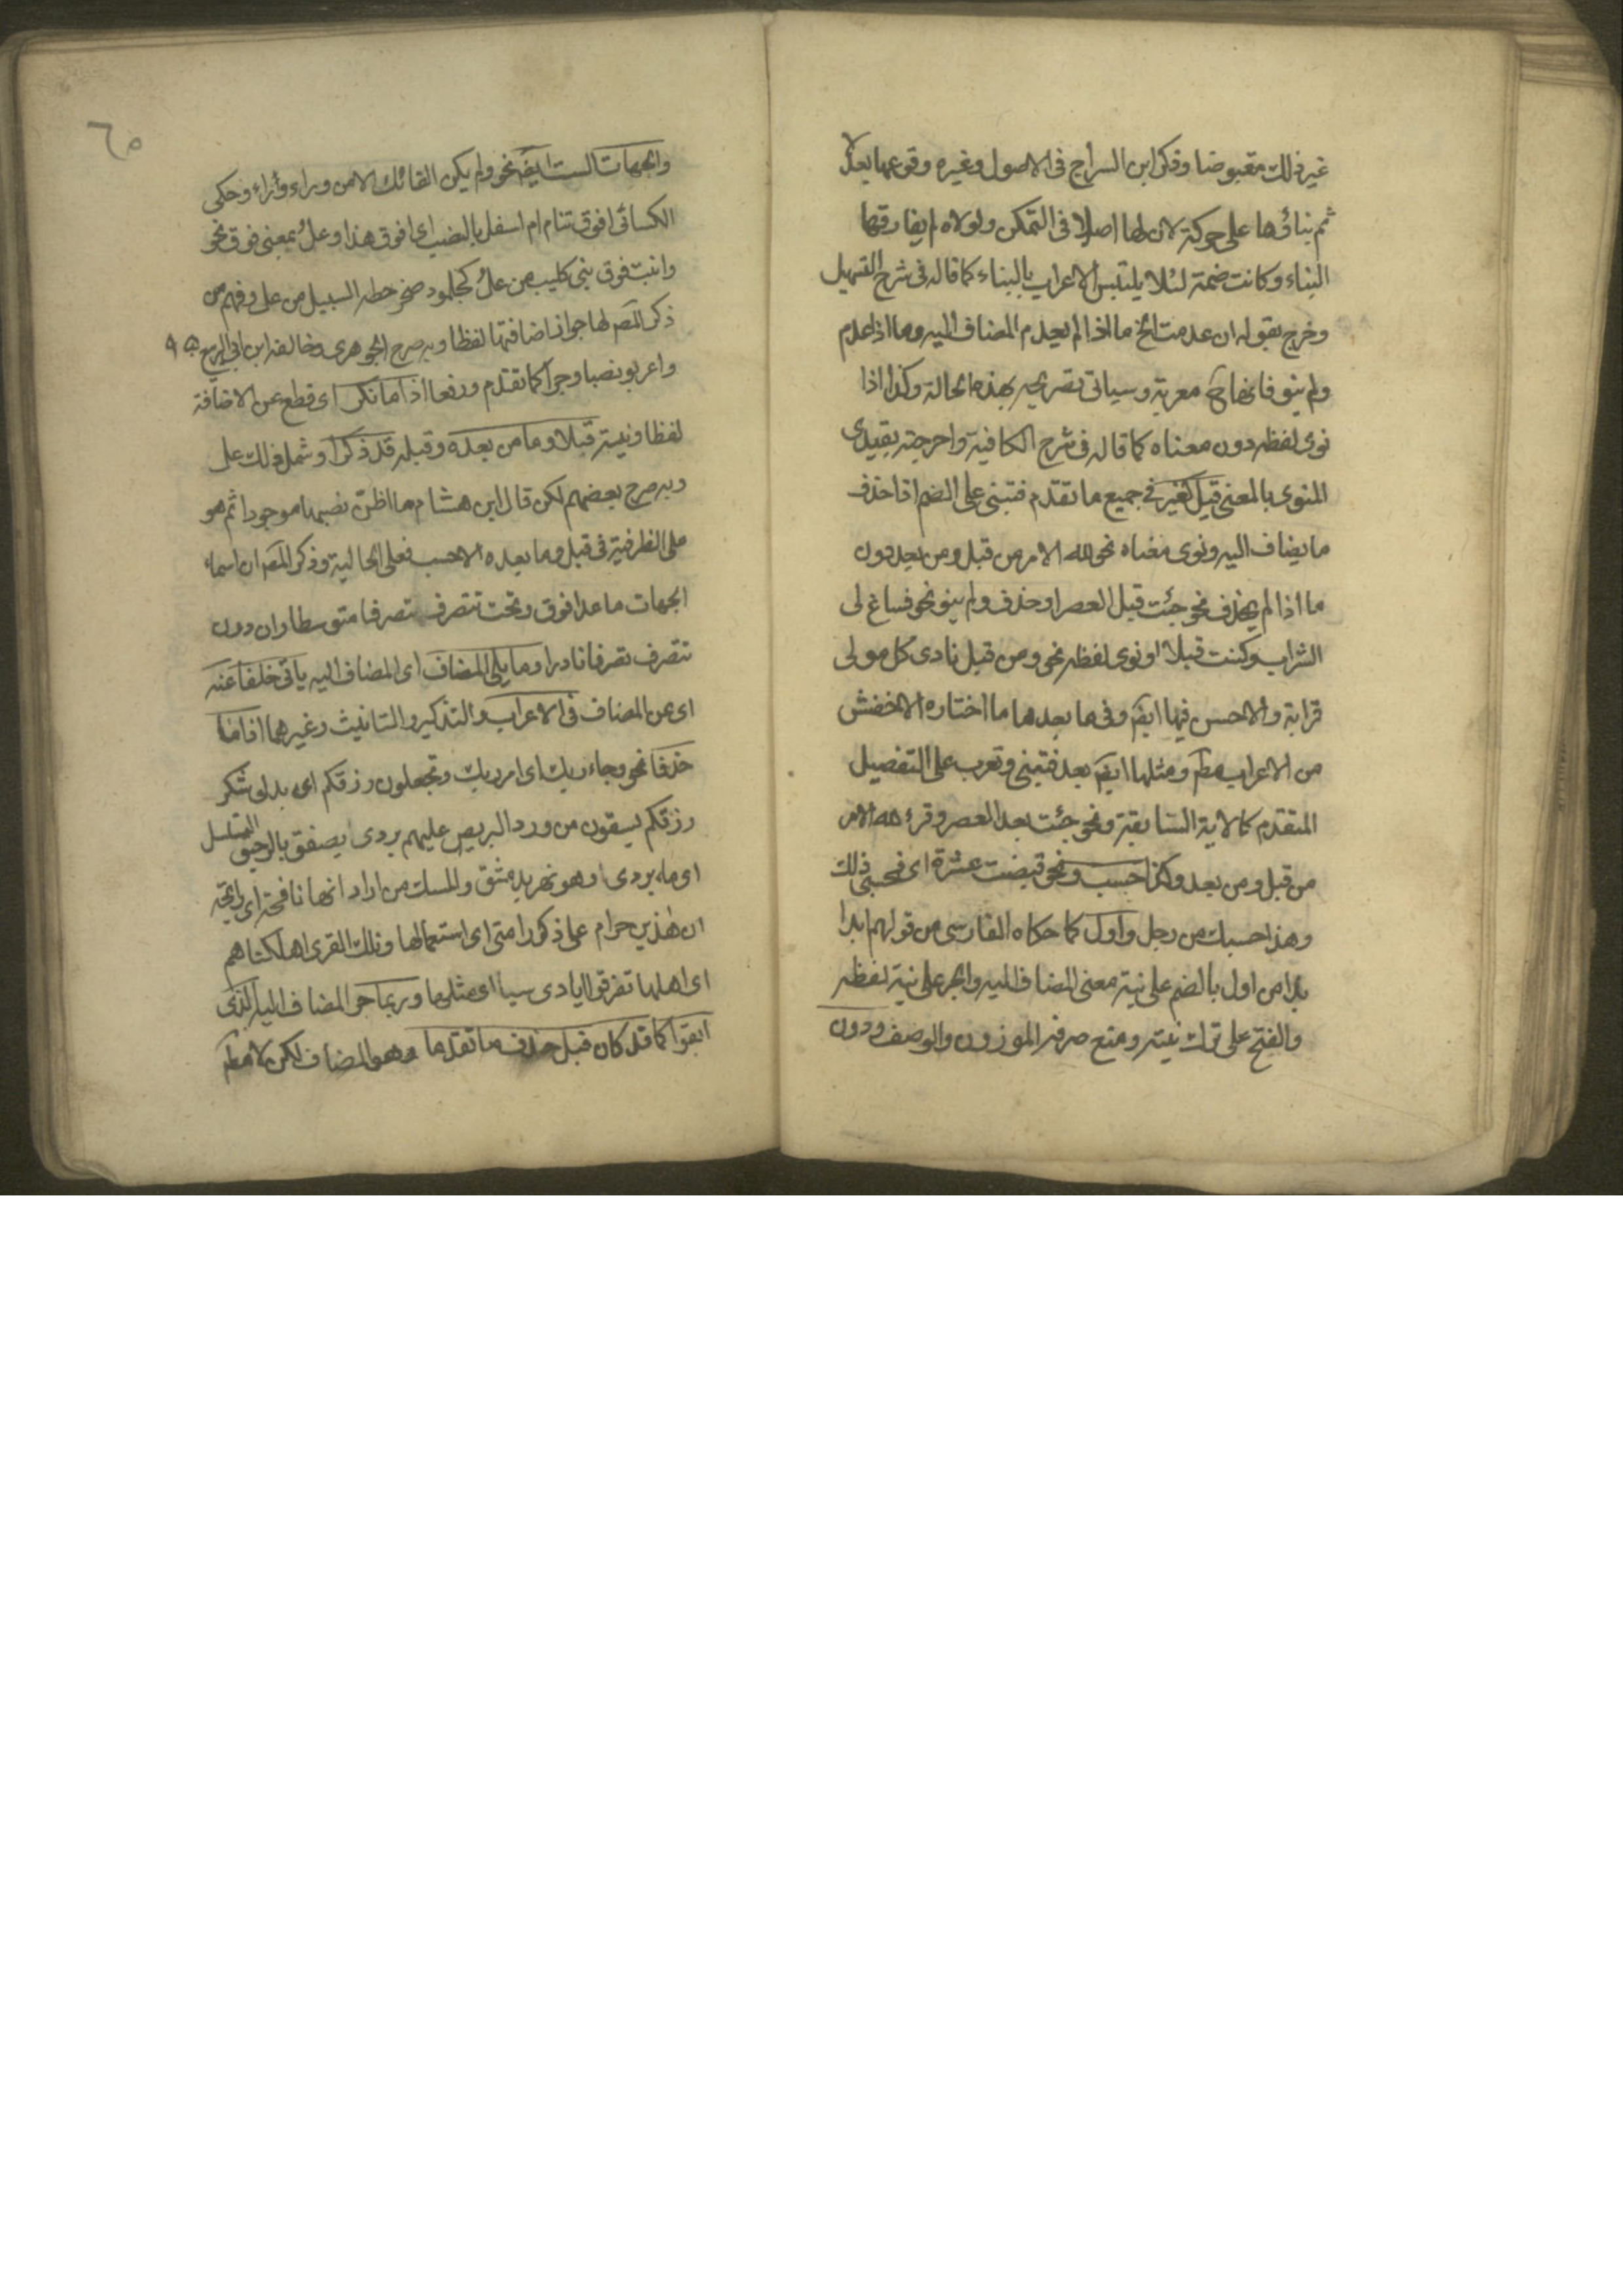 غير ذلك مقبوضا وذكر ابن السراج في الاصول وغيره وقوعها بعد لا
ثم بناؤها على حركة لان لها اصلا في التمكن ولولاه لم يفارقها
البناء وكانت ضمة لئلا يلتبس الاعراب بالبناء كما قاله في شرح التسهيل
وخرج بقوله ان عدمت الخ ما اذا لم يعدم المضاف اليه وما اذا عدم
ولم ينو فانها ح معربة وسياتي تصريحه بهذه الحالة وكذا اذا
نوى لفظه دون معناه كما قاله في شرح الكافية واخرجته بقيدي
المنوى بالمعنى قبل كغير في جميع ما تقدم فتبنى على الضم اذا حذف
ما يضاف اليه ونوى معناه نحو لله الامر من قبل ومن بعد دون
ما اذا لم يحذف نحو جئت قبل العصر او حذف ولم ينو نحو فساغ لى
الشراب وكنت قبلا او نوى لفظه نحو ومن قبل نادى كل مولى
قرابة والاحسن فيها ايض وفي ما بعدها ما اختاره الاخفش
من الاعراب مط ومثلها ايض بعد فتبنى وتعرب على التفصيل
المتقدم كالاية السابقة ونحو جئت بعد العصر وقرء لله الامر
من قبل ومن بعد وكذا حسب ونحو قبضت عشرة اى فحسبي ذلك
وهذا حسبك من رجل واول كما حكاه الفارسى من قولهم ابدا
بذا من اول بالضم على نية معنى المضاف اليه والجر على نية لفظه
والفتح على ترك نيته ومنع صرفه للوزن والوصف ودون
٦٥
والجهات الست ايض نحو ولم يكن لقائك الا من وراء وراء وحكى
الكسائى افوق تنام ام اسفل بالنصب اى افوق هذا وعل بمعنى فوق نحو
واتيت فوق بني كليب من عل كجلمود صخر حطه السيل من عل وفهم من
ذكر المص لها جواز اضافتها لفظا وبه صرح الجوهرى وخالفه ابن ابي الربيع
واعربوا نصبا وجرا كما تقدم ورفعا اذا ما نكرا اى قطع عن الاضافة
لفظا ونية قبلا وما من بعده وقبله قد ذكرا وشمل ذلك عل
وبه صرح بعضهم لكن قال ابن هشام ما اظن نصبها موجودا ثم هو
على الظرفية في قبل وما بعده الا حسب فعلى الحالية وذكر المص ان اسماء
الجهات ما عدا فوق وتحت تتصرف تصرفا متوسطا وان دون
تتصرف تصرفا نادرا وما يلي المضاف اى المضاف اليه ياتى خلفا عنه
اى عن المضاف في الاعراب والتذكير والتانيث وغيرهما اذا ما
حذفا نحو وجاء ربك اى امر ربك وتجعلون رزقكم اى بدل شكر
رزقكم يسقون من ورد البريص عليهم بردى يصفق بالرحيق السلسل
اى ماء بردى وهو نهر بدمشق والمسك من اردانها نافحة اى رائحة
ان هذين حرام على ذكور امتى اى استعمالها وتلك القرى اهلكناهم
اى اهلها تفرقوا ايادى سبا اى مثلها وربما جر المضاف اليه الذى
ابقوا كما قد كان قبل حذف ما تقدما وهو المضاف لكن لا مط